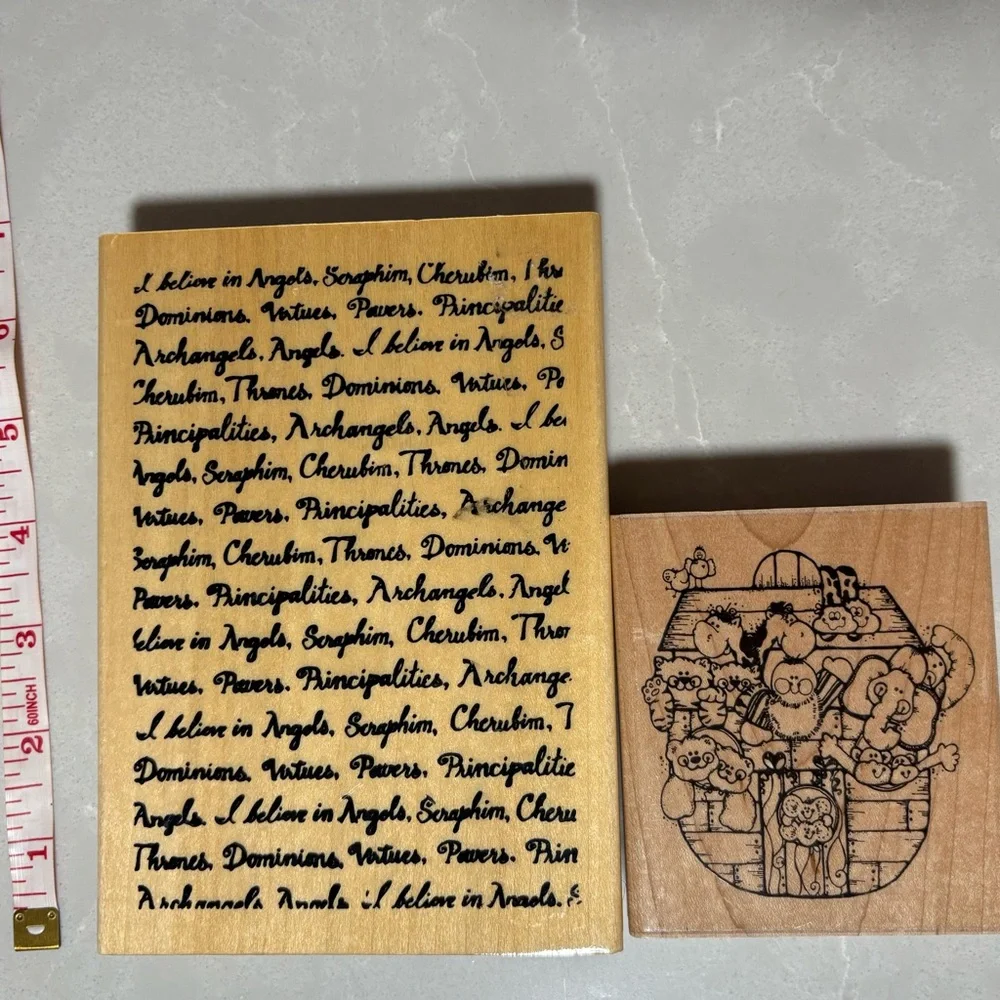 I believe in Angels, Seraphim, Cherubim, Thr
Dominions, Virtues, Powers. Principalitie
Archangels, Angels. I believe in Angels, S
Cherubim, Thrones, Dominions, Virtues, Po
Principalities, Archangels, Angels. I be
Angels, Seraphim, Cherubim, Thrones, Domin
Virtues, Powers, Principalities, Archange
Seraphim, Cherubim, Thrones, Dominions, Vi
Powers. Principalities, Archangels, Angel
elieve in Angels, Seraphim, Cherubim, Thro
Virtues, Powers. Principalities, Archange
I believe in Angels, Seraphim, Cherubim, T
Dominions, Virtues, Powers, Principalitie
Angels. I believe in Angels, Seraphim, Cheru
Thrones, Dominions, Virtues, Powers. Prin
Archangels, Angels. I believe in Angels. S
6
5
4
3
60INCH
2
1